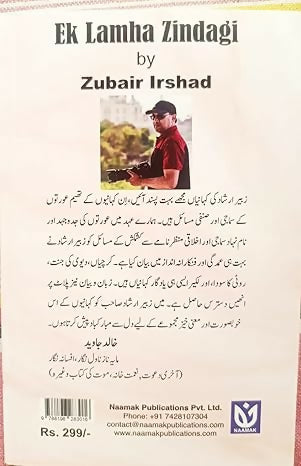 Ek Lamha Zindagi
by
Zubair Irshad
زبیر ارشاد کی کہانیاں مجھے بہت پسند آئیں، ان کہانیوں کے تھیم عورتوں
کے سماجی اور صنفی مسائل ہیں۔ ہمارے عہد میں عورتوں کی جدوجہد اور
نام نہاد سماجی اور اخلاقی منظرنامے سے کشمکش کے مسائل کو زبیر ارشاد نے
بہت ہی عمدگی اور فنکارانہ انداز میں بیان کیا ہے۔ کرچیاں، دیوی کی جنت،
روٹی کا سودا، اور لکیر ایسی ہی یادگار کہانیاں ہیں۔ زبان و بیان نیز پلاٹ پر
انھیں دسترس حاصل ہے۔ میں زبیر ارشاد صاحب کو کہانیوں کے اس
خوبصورت اور معنی خیز مجموعے کے لیے دل سے مبارکباد پیش کرتا ہوں۔
خالد جاوید
مایہ ناز ناول نگار، افسانہ نگار
(آخری دعوت، نعمت خانہ، موت کی کتاب وغیرہ)
Rs. 299/-
Naamak Publications Pvt. Ltd.
Phone: +91 7428107304
contact@naamakpublications.com
www.naamakpublications.com
NAAMAK